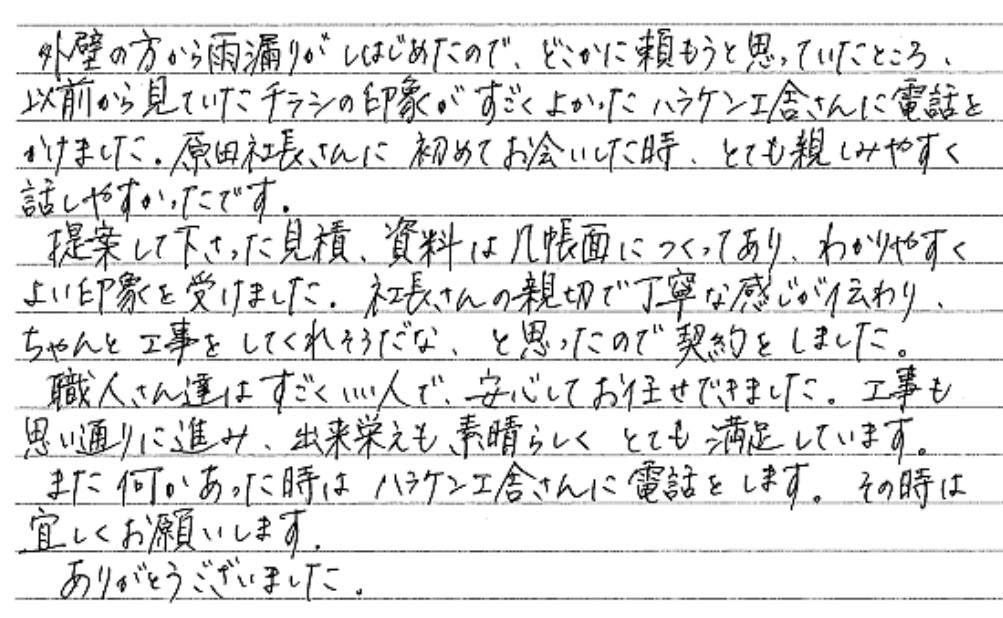 外壁の方から雨漏りがしはじめたので、どこかに頼もうと思っていたところ、
以前から見ていたチラシの印象がすごくよかったハラケン工舎さんに電話を
かけました。原田社長さんに初めてお会いした時、とても親しみやすく
話しやすかったです。
提案して下さった見積、資料は几帳面につくってあり、わかりやすく
よい印象を受けました。社長さんの親切で丁寧な感じが伝わり、
ちゃんと工事をしてくれそうだな、と思ったので契約をしました。
職人さん達はすごくいい人で、安心してお任せできました。工事も
思い通りに進み、出来栄えも素晴らしくとても満足しています。
また何かあった時はハラケン工舎さんに電話をします。その時は
宜しくお願いします。
ありがとうございました。